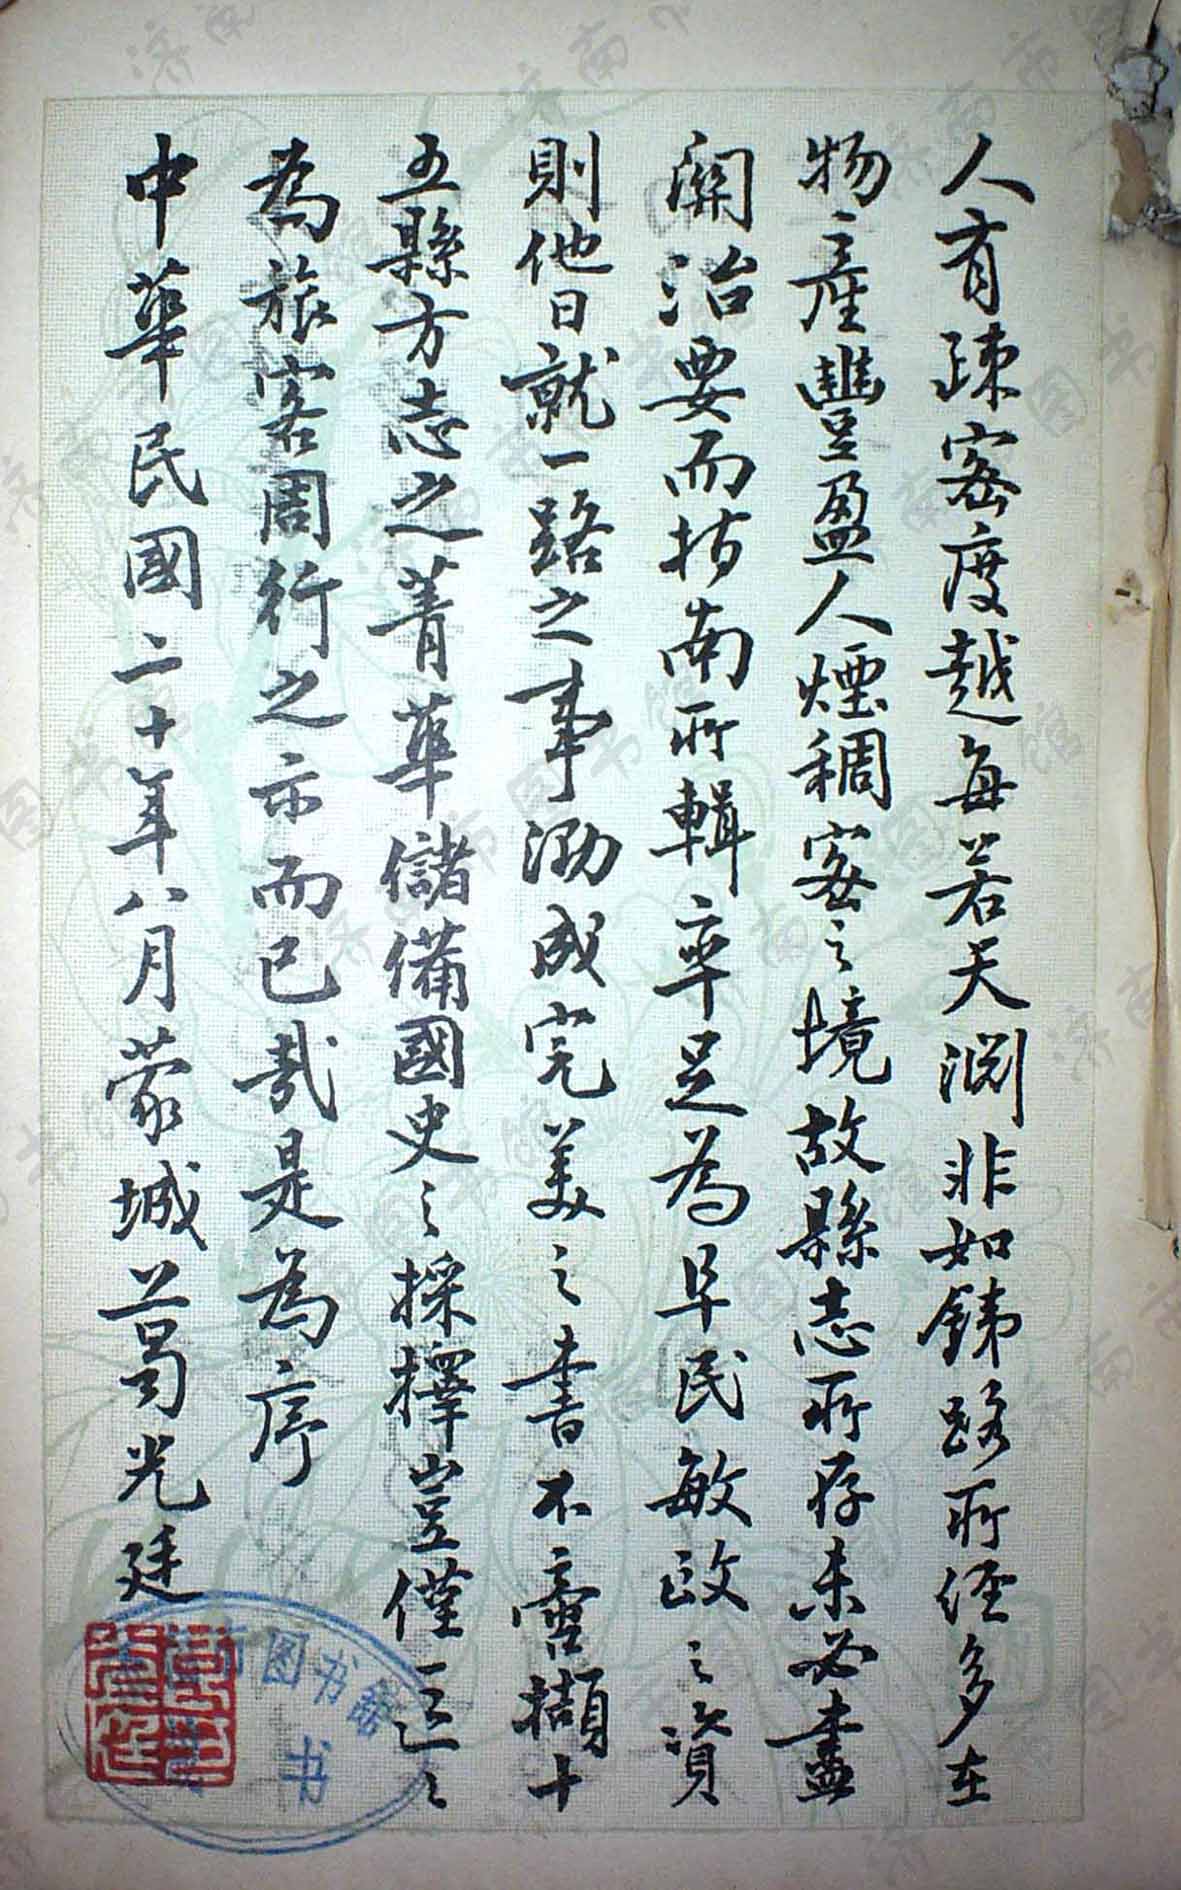 人有疎密度越每若天淵非如鐵路所經多在
物產豐盈人煙稠密之境故縣志所存未必盡
關治要而指南所輯率足為阜民敏政之資
則他日就一路之事泐成完美之書不啻擷十
五縣方志之菁華儲備國史之採擇豈僅區區
為旅客周行之示而已哉是為序
中華民國二十年八月蒙城葛光廷
图书馆
书